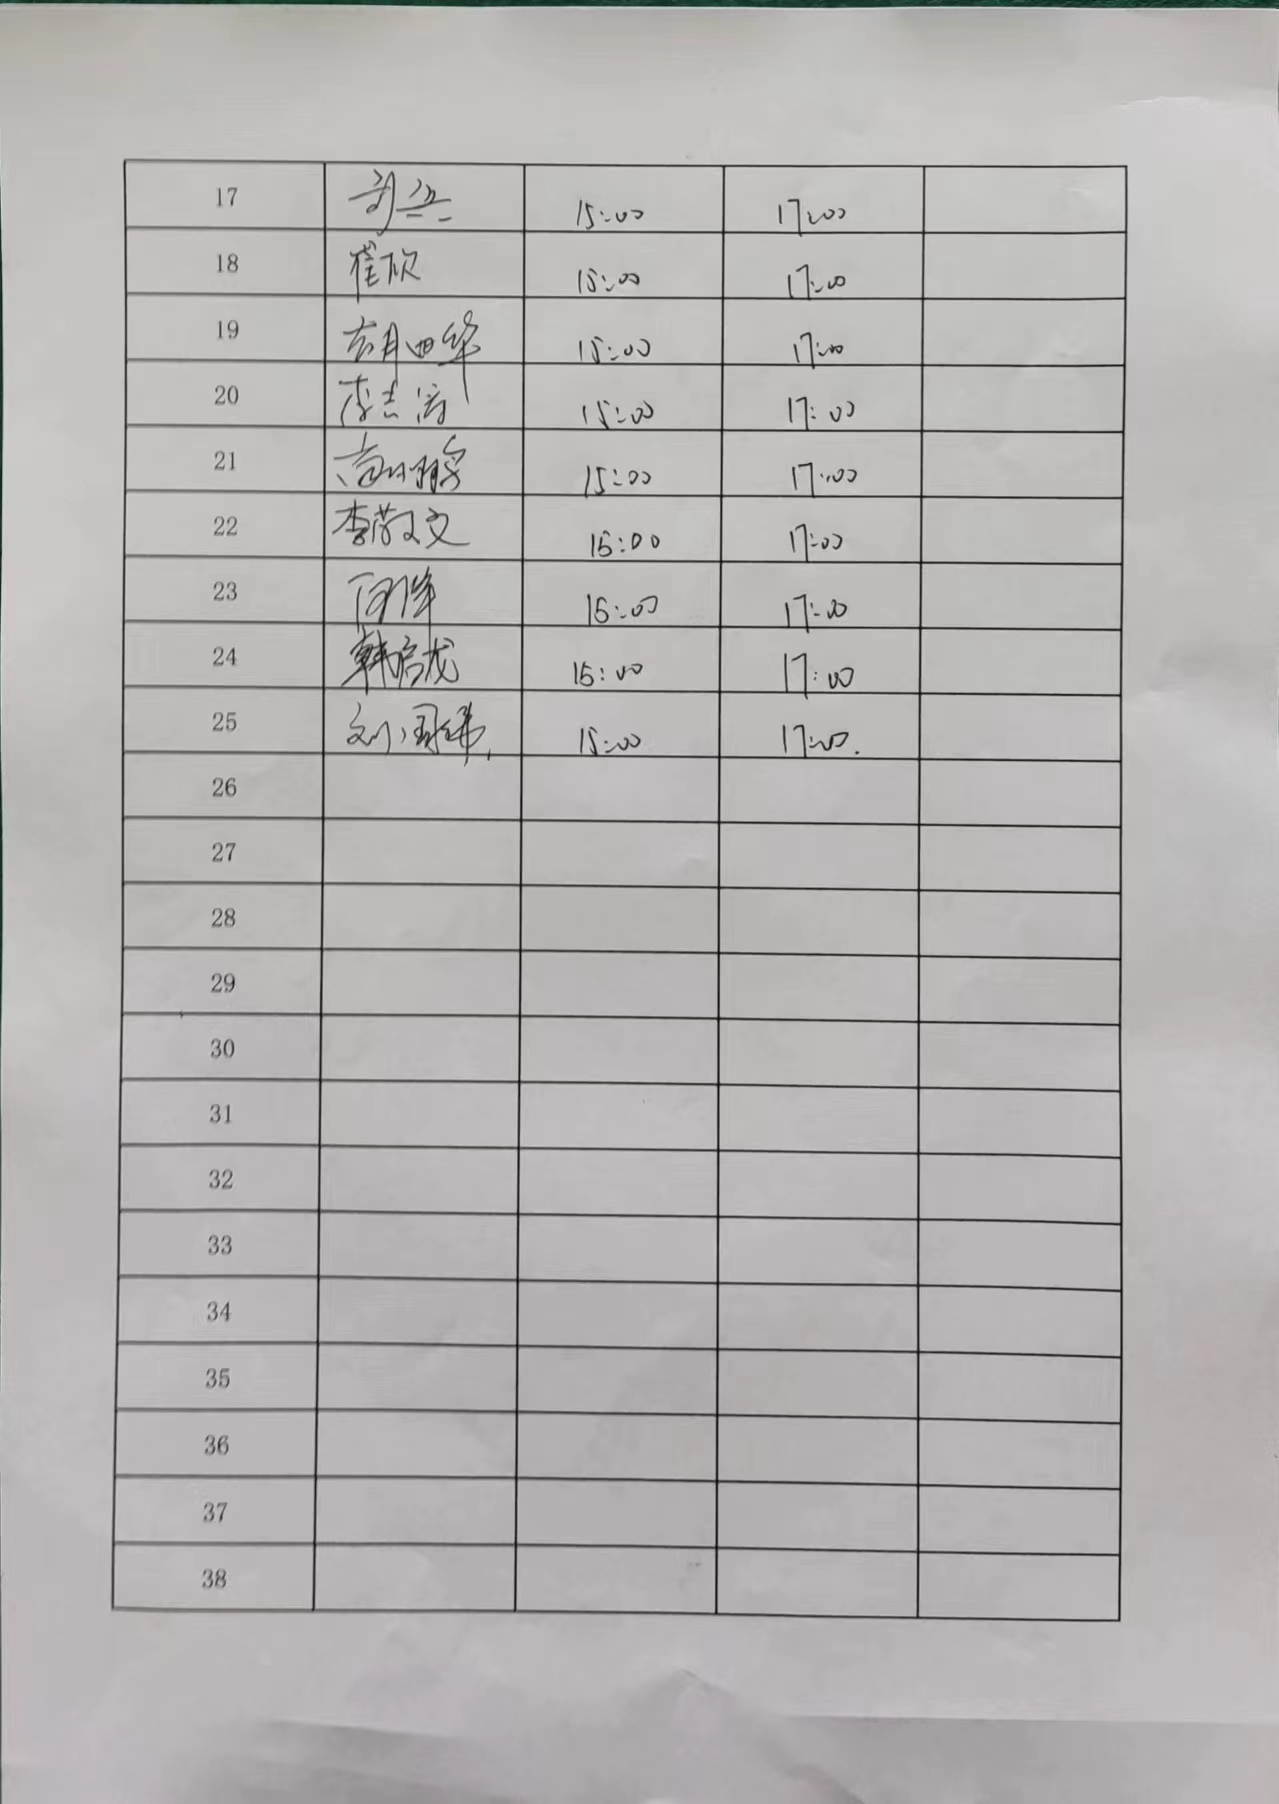 17 15:00 17:00
18 崔欣 15:00 17:00
19 胡四华 15:00 17:00
20 李志涛 15:00 17:00
21 15:00 17:00
22 李敬文 15:00 17:00
23 何伟 15:00 17:00
24 韩启龙 15:00 17:00
25 刘国伟 15:00 17:00
26
27
28
29
30
31
32
33
34
35
36
37
38